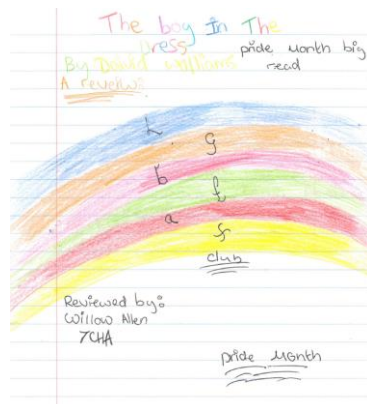 The boy In The
Dress
pride Month big
read
By David Williams
A review:
L g
b t
a f
club
Reviewed by:
Willow Allen
7CHA
pride Month